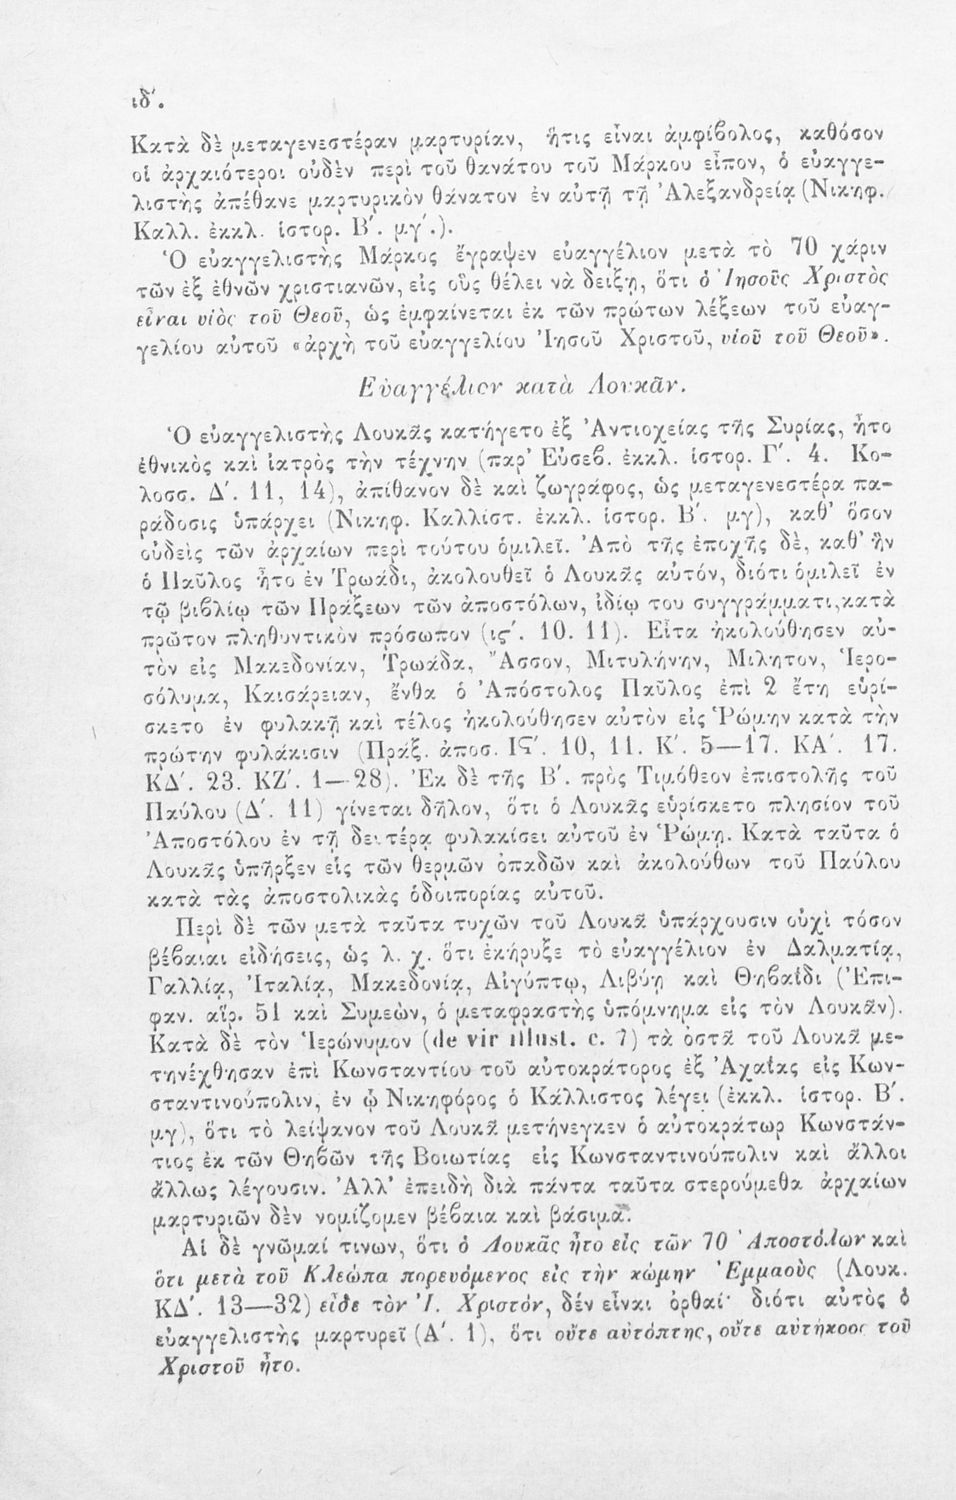 ιδ΄.
Κατὰ δὲ μεταγενεστέραν μαρτυρίαν, ἥτις εἶναι ἀμφίβολος, καθόσον
οἱ ἀρχαιότεροι οὐδὲν περὶ τοῦ θανάτου τοῦ Μάρκου εἶπον, ὁ εὐαγγε-
λιστὴς ἀπέθανε μαρτυρικὸν θάνατον ἐν αὐτῇ τῇ Ἀλεξανδρείᾳ (Νικηφ.
Καλλ. ἐκκλ. ἱστορ. Β΄. μγ΄.).
Ὁ εὐαγγελιστὴς Μάρκος ἔγραψεν εὐαγγέλιον μετὰ τὸ 70 χάριν
τῶν ἐξ ἐθνῶν χριστιανῶν, εἰς οὓς θέλει νὰ δείξῃ, ὅτι ὁ Ἰησοῦς Χριστὸς
εἶναι υἱὸς τοῦ Θεοῦ, ὡς ἐμφαίνεται ἐκ τῶν πρώτων λέξεων τοῦ εὐαγ-
γελίου αὐτοῦ «ἀρχὴ τοῦ εὐαγγελίου Ἰησοῦ Χριστοῦ, υἱοῦ τοῦ Θεοῦ».
Εὐαγγέλιον κατὰ Λουκᾶν.
Ὁ εὐαγγελιστὴς Λουκᾶς κατήγετο ἐξ Ἀντιοχείας τῆς Συρίας, ἦτο
ἐθνικὸς καὶ ἰατρὸς τὴν τέχνην (παρ' Εὐσεβ. ἐκκλ. ἱστορ. Γ΄. 4. Κο-
λοσσ. Δ΄. 11, 14), ἀπίθανον δὲ καὶ ζωγράφος, ὡς μεταγενεστέρα πα-
ράδοσις ὑπάρχει (Νικηφ. Καλλίστ. ἐκκλ. ἱστορ. Β΄. μγ), καθ' ὅσον
οὐδεὶς τῶν ἀρχαίων περὶ τούτου ὁμιλεῖ. Ἀπὸ τῆς ἐποχῆς δὲ, καθ' ἣν
ὁ Παῦλος ἦτο ἐν Τρωάδι, ἀκολουθεῖ ὁ Λουκᾶς αὐτόν, διότι ὁμιλεῖ ἐν
τῷ βιβλίῳ τῶν Πράξεων τῶν ἀποστόλων, ἰδίῳ του συγγράμματι, κατὰ
πρῶτον πληθυντικὸν πρόσωπον (ις΄. 10. 11). Εἶτα ἠκολούθησεν αὐ-
τὸν εἰς Μακεδονίαν, Τρωάδα, Ἄσσον, Μιτυλήνην, Μίλητον, Ἱερο-
σόλυμα, Καισάρειαν, ἔνθα ὁ Ἀπόστολος Παῦλος ἐπὶ 2 ἔτη εὑρί-
σκετο ἐν φυλακῇ καὶ τέλος ἠκολούθησεν αὐτὸν εἰς Ῥώμην κατὰ τὴν
πρώτην φυλάκισιν (Πράξ. ἀποσ. ΙϚ΄. 10, 11. Κ΄. 5—17. ΚΑ΄. 17.
ΚΔ΄. 23. ΚΖ΄. 1—28). Ἐκ δὲ τῆς Β΄. πρὸς Τιμόθεον ἐπιστολῆς τοῦ
Παύλου (Δ΄. 11) γίνεται δῆλον, ὅτι ὁ Λουκᾶς εὑρίσκετο πλησίον τοῦ
Ἀποστόλου ἐν τῇ δευτέρᾳ φυλακίσει αὐτοῦ ἐν Ῥώμῃ. Κατὰ ταῦτα ὁ
Λουκᾶς ὑπῆρξεν εἷς τῶν θερμῶν ὀπαδῶν καὶ ἀκολούθων τοῦ Παύλου
κατὰ τὰς ἀποστολικὰς ὁδοιπορίας αὐτοῦ.
Περὶ δὲ τῶν μετὰ ταῦτα τυχῶν τοῦ Λουκᾶ ὑπάρχουσιν οὐχὶ τόσον
βέβαιαι εἰδήσεις, ὡς λ. χ. ὅτι ἐκήρυξε τὸ εὐαγγέλιον ἐν Δαλματίᾳ,
Γαλλίᾳ, Ἰταλίᾳ, Μακεδονίᾳ, Αἰγύπτῳ, Λιβύῃ καὶ Θηβαΐδι (Ἐπι-
φαν. αἵρ. 51 καὶ Συμεὼν, ὁ μεταφραστὴς ὑπόμνημα εἰς τὸν Λουκᾶν).
Κατὰ δὲ τὸν Ἱερώνυμον (de vir illust. c. 7) τὰ ὀστᾶ τοῦ Λουκᾶ με-
τηνέχθησαν ἐπὶ Κωνσταντίου τοῦ αὐτοκράτορος ἐξ Ἀχαΐας εἰς Κων-
σταντινούπολιν, ἐν ᾧ Νικηφόρος ὁ Κάλλιστος λέγει (ἐκκλ. ἱστορ. Β΄.
μγ), ὅτι τὸ λείψανον τοῦ Λουκᾶ μετήνεγκεν ὁ αὐτοκράτωρ Κωνστάν-
τιος ἐκ τῶν Θηβῶν τῆς Βοιωτίας εἰς Κωνσταντινούπολιν καὶ ἄλλοι
ἄλλως λέγουσιν. Ἀλλ' ἐπειδὴ διὰ πάντα ταῦτα στερούμεθα ἀρχαίων
μαρτυριῶν δὲν νομίζομεν βέβαια καὶ βάσιμα.
Αἱ δὲ γνῶμαί τινων, ὅτι ὁ Λουκᾶς ἦτο εἷς τῶν 70 Ἀποστόλων καὶ
ὅτι μετὰ τοῦ Κλεώπα πορευόμενος εἰς τὴν κώμην Ἐμμαοὺς (Λουκ.
ΚΔ΄. 13—32) εἶδε τὸν Ἰ. Χριστόν, δέν εἶναι ὀρθαί· διότι αὐτὸς ὁ
εὐαγγελιστὴς μαρτυρεῖ (Α΄. 1), ὅτι οὔτε αὐτόπτης, οὔτε αὐτήκοος τοῦ
Χριστοῦ ἦτο.